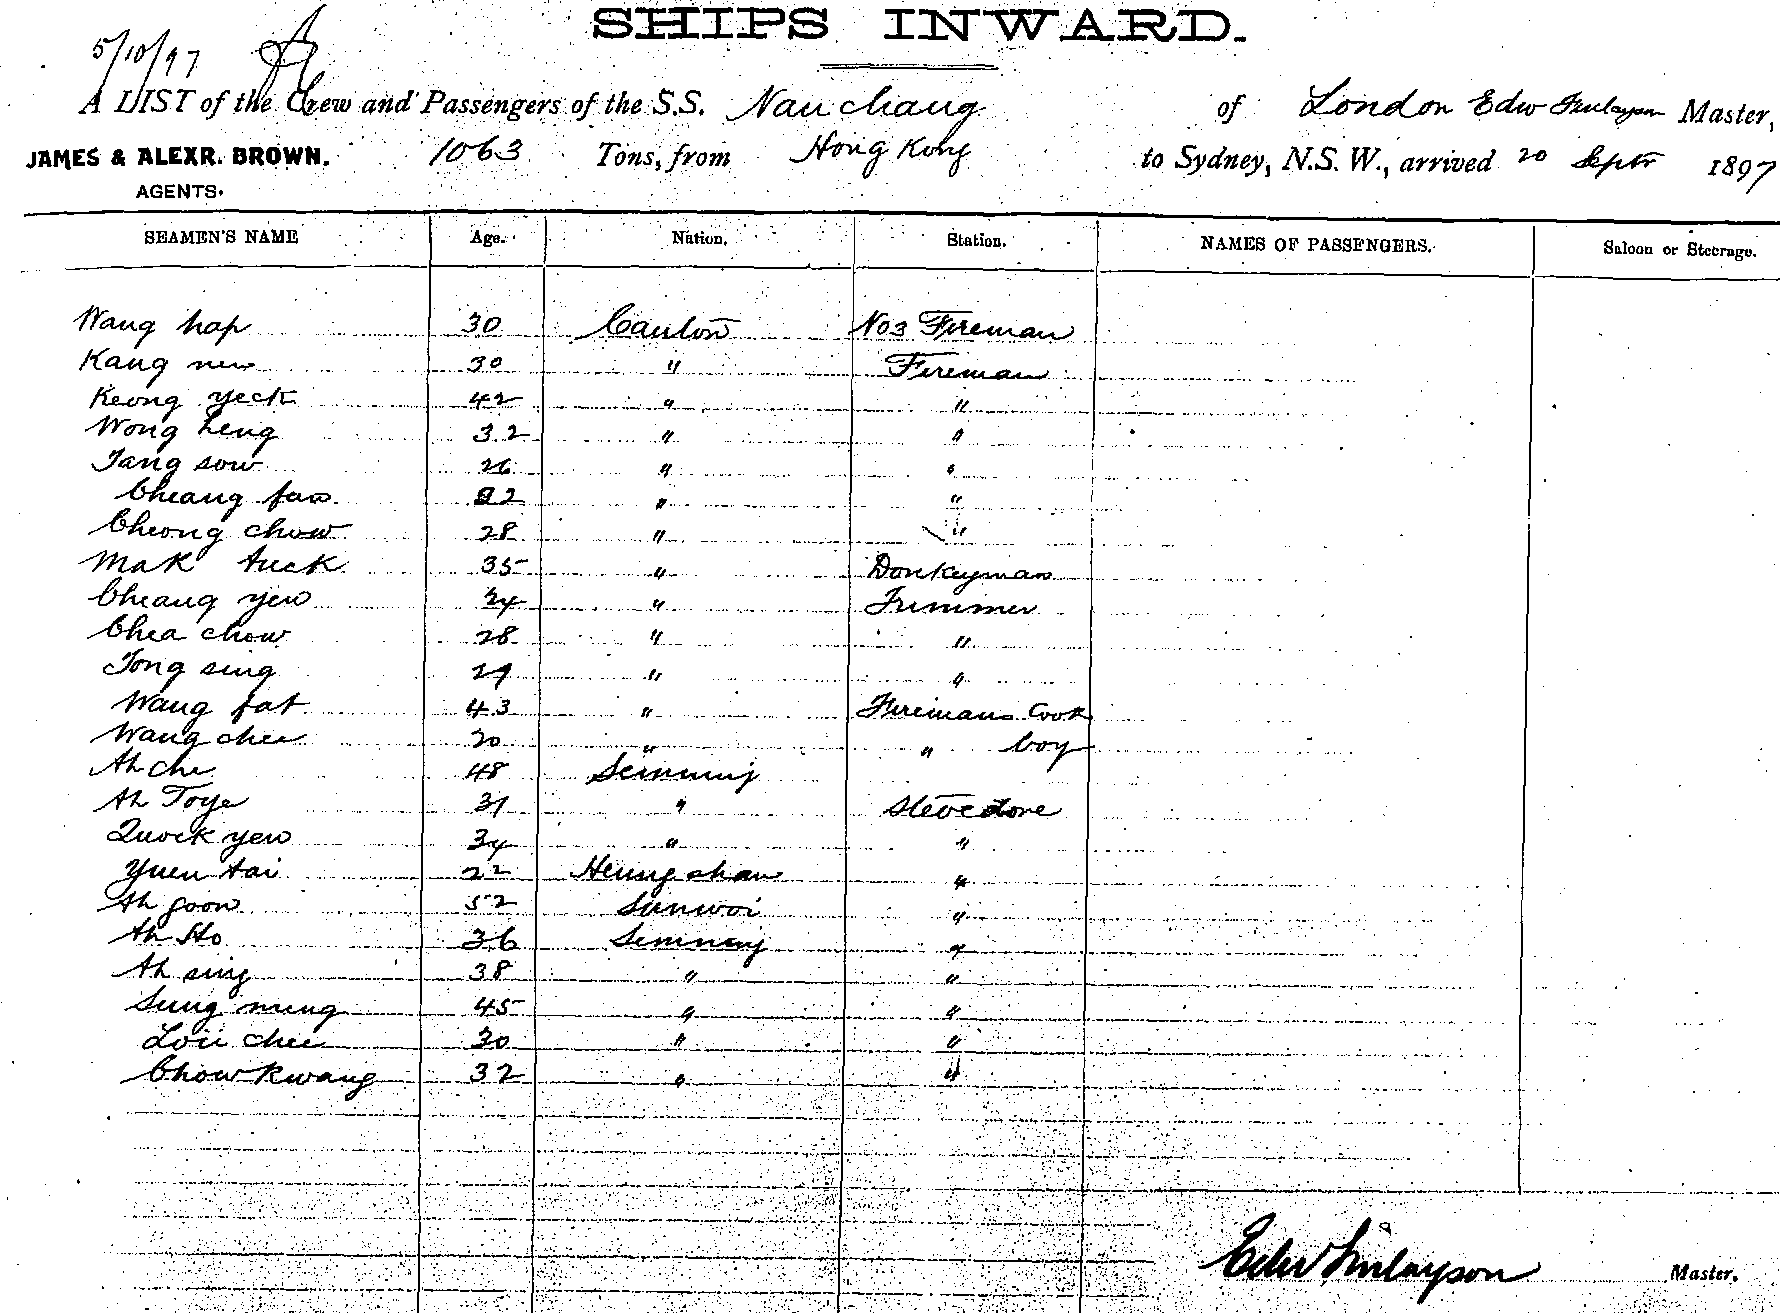 SHIPS INWARD.
5/10/97
A LIST of the Crew and Passengers of the S.S. Nanchang of London Edw Finlayson Master,
JAMES & ALEXR. BROWN. 1063 Tons, from Hong Kong to Sydney, N.S.W., arrived 20 Septr 1897
AGENTS.
SEAMEN'S NAME Age. Nation. Station. NAMES OF PASSENGERS. Saloon or Steerage.
Wang hap 30 Canton No 3 Fireman
Kang new 30 " Fireman
Keong yeck 42 " "
Wong heng 32 " "
Tang sow 26 " "
Cheang fan 32 " "
Cheong chow 28 " "
Mak tuck 35 " Donkeyman
Cheang yew 24 " Trimmer
Chea chow 28 " "
Tong sing 29 " "
Wang fat 43 " Firemans Cook
Wang chee 20 " " boy
Ah che 48 Sinning
Ah Toye 31 " Stevedore
Quock yew 34 " "
Yuen tai 22 Heungshan "
Ah goon 52 Sunwoi "
Ah Sto 36 Sinning "
Ah sing 38 " "
Sung ming 45 " "
Loii chee 30 " "
Chow Kwang 32 " "
Edw Finlayson Master.